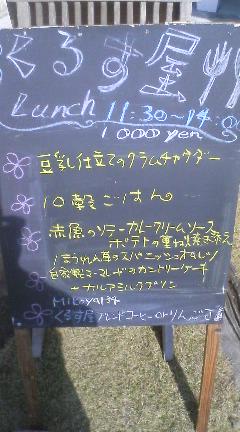 くるす屋
Lunch 11:30~14:00
1000yen
豆乳仕立てのクラムチャウダー
10穀ごはん
赤魚のソテーカレークリームソース
ポテトの重ね焼き添え
ほうれん草のスパニッシュオムレツ
自家製マーマレードのカントリーケーキ
くるす屋ブレンドコーヒーorりんご